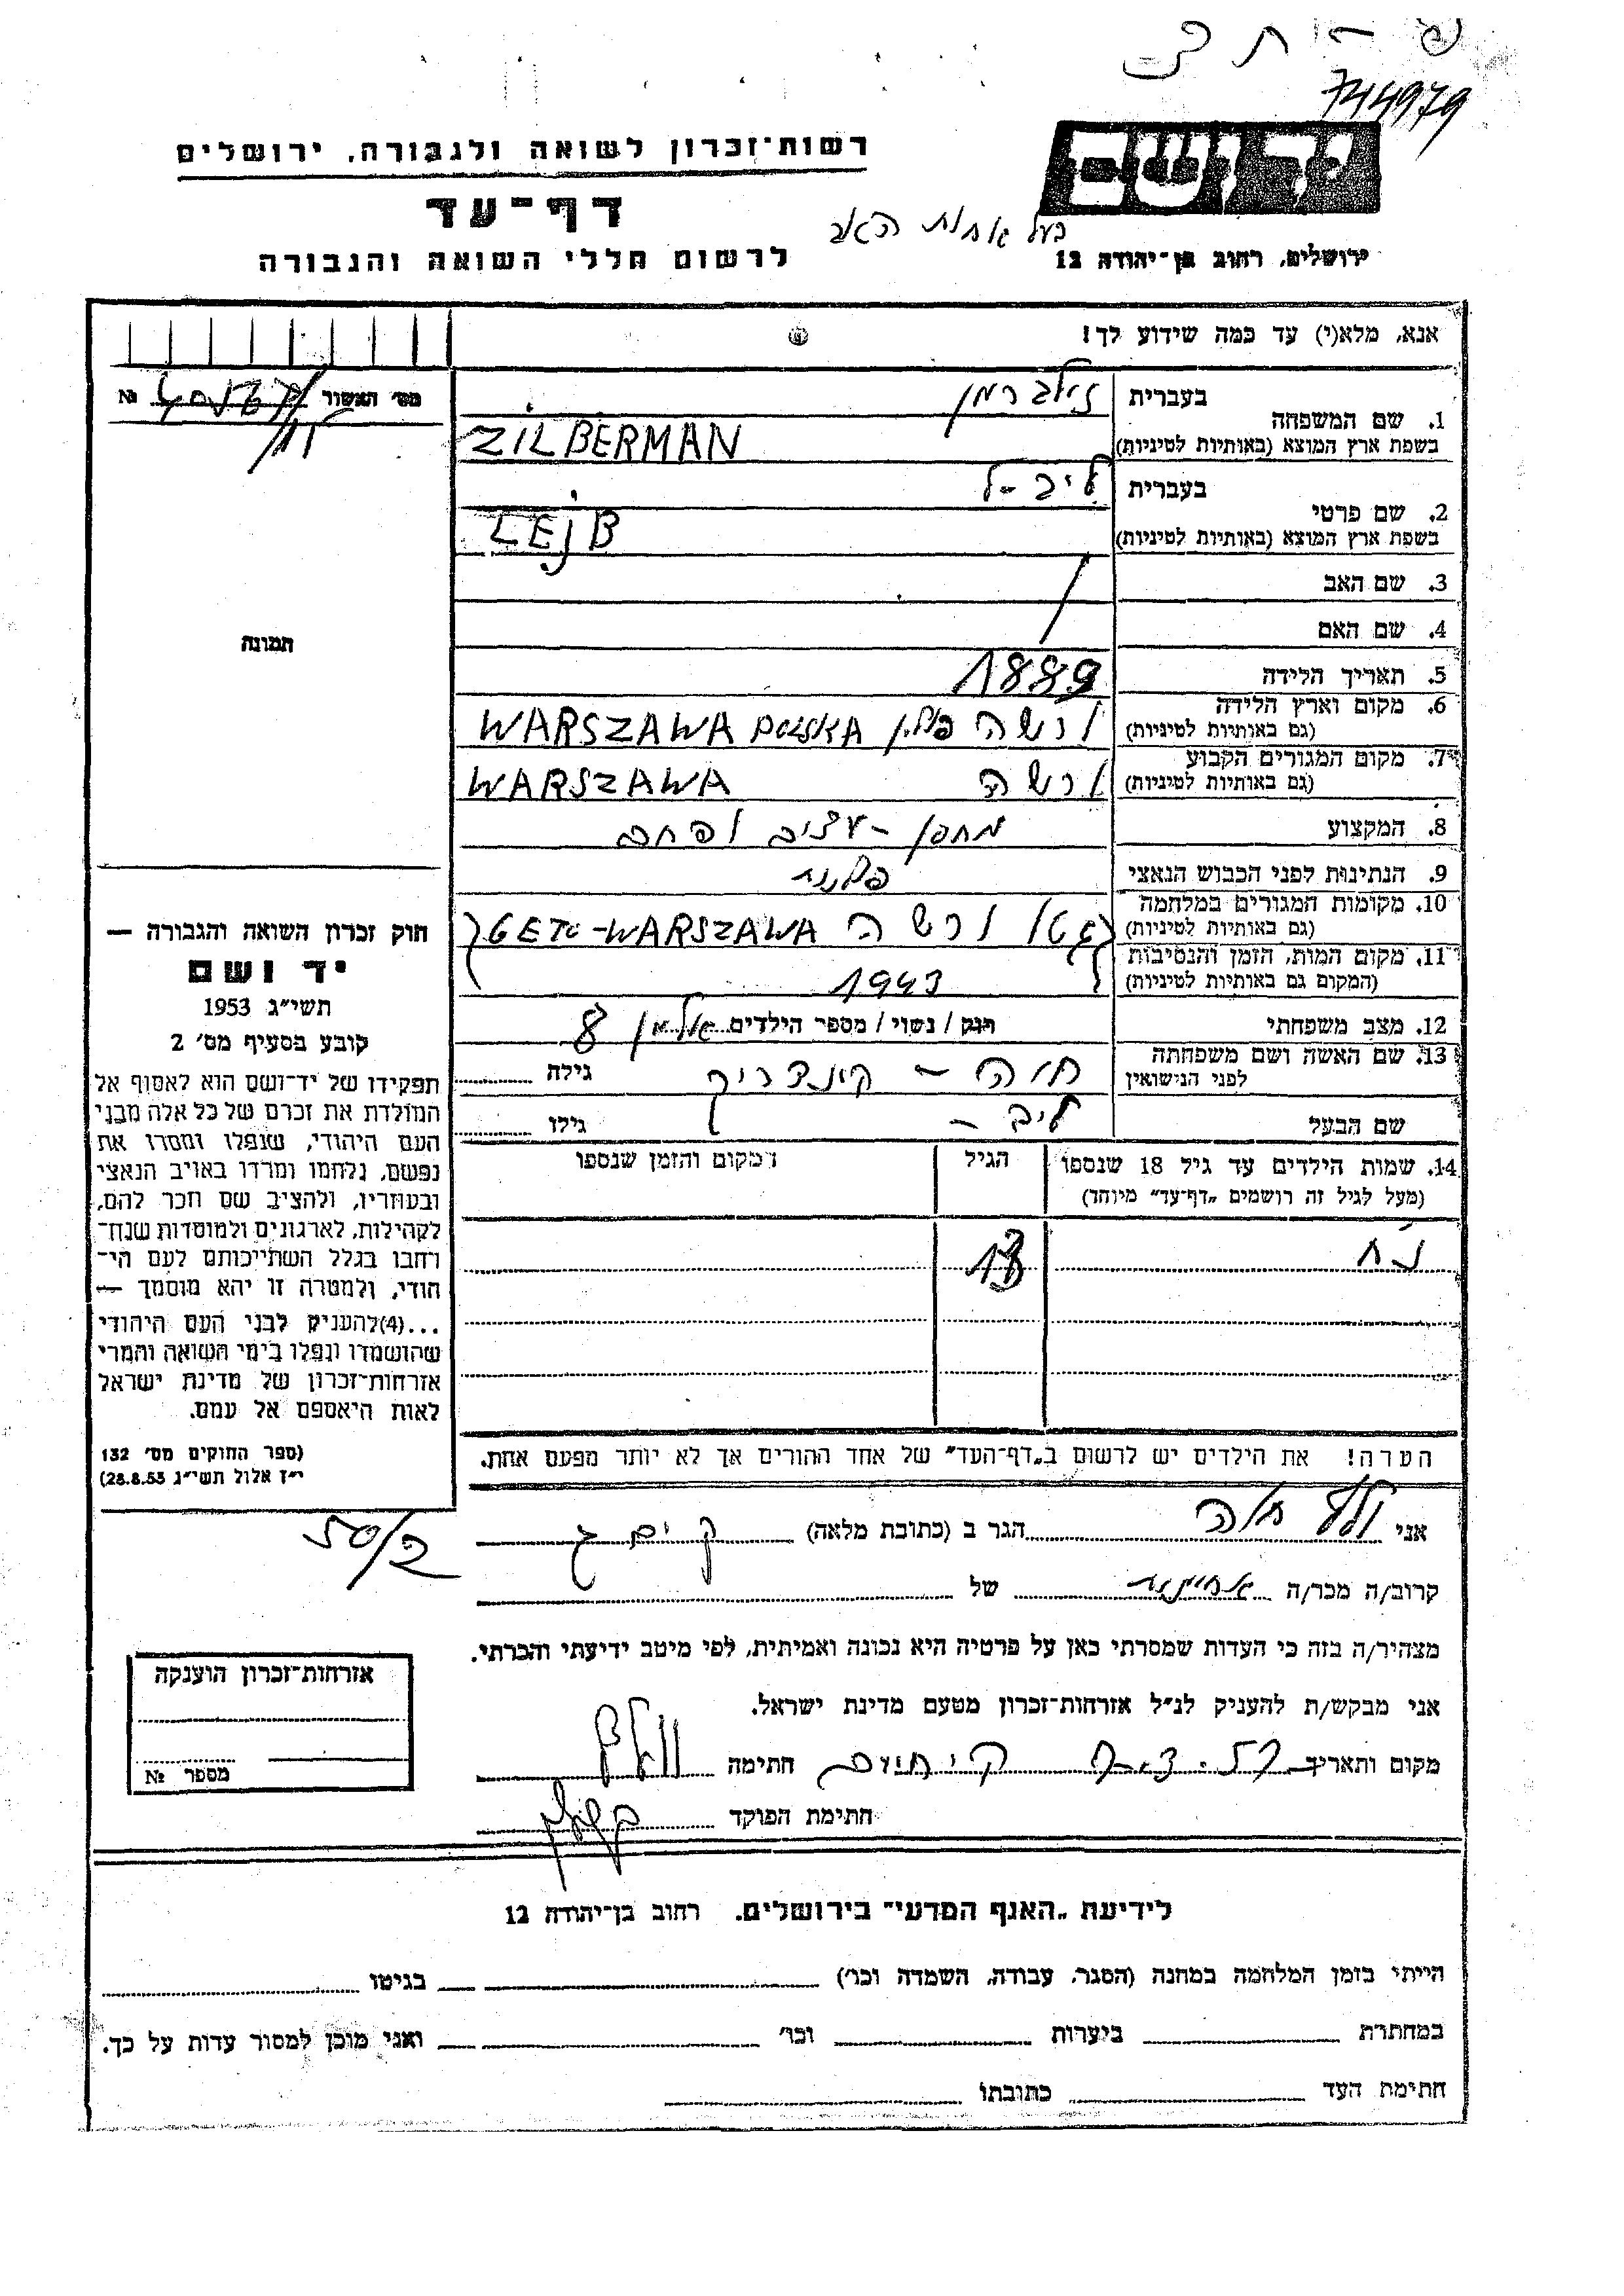 744979
רשות־זכרון לשואה ולגבורה, ירושלים
יד ושם
דף־עד
בעל אחות האב
לרשום חללי השואה והגבורה
ירושלים, רחוב בן־יהודה 12
אנא, מלא(י) עד כמה שידוע לך!
מס׳ האשור №
1. שם המשפחה
בעברית זילברמן
בשפת ארץ המוצא (באותיות לטיניות) ZILBERMAN
2. שם פרטי
בעברית
בשפת ארץ המוצא (באותיות לטיניות) LEJB
3. שם האב
4. שם האם
תמונה
5. תאריך הלידה 1889
6. מקום וארץ הלידה
(גם באותיות לטיניות) ורשה פולין WARSZAWA POLSKA
7. מקום המגורים הקבוע
(גם באותיות לטיניות) ורשה WARSZAWA
8. המקצוע מחסן - עצים ופחם
9. הנתינות לפני הכבוש הנאצי פולנית
10. מקומות המגורים במלחמה
(גם באותיות לטיניות) גטו ורשה GETO-WARSZAWA
11. מקום המות, הזמן והנסיבות
(המקום גם באותיות לטיניות) 1943
12. מצב משפחתי רווק / נשוי / מספר הילדים אלמן 8
13. שם האשה ושם משפחתה
לפני הנישואין חוה - גילה
שם הבעל ליב - גילו
14. שמות הילדים עד גיל 18 שנספו הגיל המקום והזמן שנספו
(מעל לגיל זה רושמים „דף־עד” מיוחד)
נח 13
הערה! את הילדים יש לרשום ב„דף־העד” של אחד ההורים אך לא יותר מפעם אחת.
חוק זכרון השואה והגבורה —
יד ושם
תשי״ג 1953
קובע בסעיף מס׳ 2
תפקידו של יד־ושם הוא לאסוף אל
המולדת את זכרם של כל אלה מבני
העם היהודי, שנפלו ומסרו את
נפשם, נלחמו ומרדו באויב הנאצי
ובעוזריו, ולהציב שם וזכר להם,
לקהילות, לארגונים ולמוסדות שנח־
רבו בגלל השתייכותם לעם הי־
הודי, ולמטרה זו יהא מוסמך —
...(4)להעניק לבני העם היהודי
שהושמדו ונפלו בימי השואה והמרי
אזרחות־זכרון של מדינת ישראל
לאות היאספם אל עמם.
(ספר החוקים מס׳ 132
י״ז אלול תשי״ג 28.8.53)
50/2
אני הגר ב (כתובת מלאה)
קרוב/ה מכר/ה אחיינית של
מצהיר/ה בזה כי העדות שמסרתי כאן על פרטיה היא נכונה ואמיתית, לפי מיטב ידיעתי והכרתי.
אני מבקש/ת להעניק לנ״ל אזרחות־זכרון מטעם מדינת ישראל.
מקום ותאריך חתימה
חתימת הפוקד
אזרחות־זכרון הוענקה
מספר №
לידיעת „האגף המדעי” בירושלים, רחוב בן־יהודה 12
הייתי בזמן המלחמה במחנה (הסגר, עבודה, השמדה וכו׳) בגיטו
במחתרת ביערות וכו׳ ואני מוכן למסור עדות על כך.
חתימת העד כתובתו